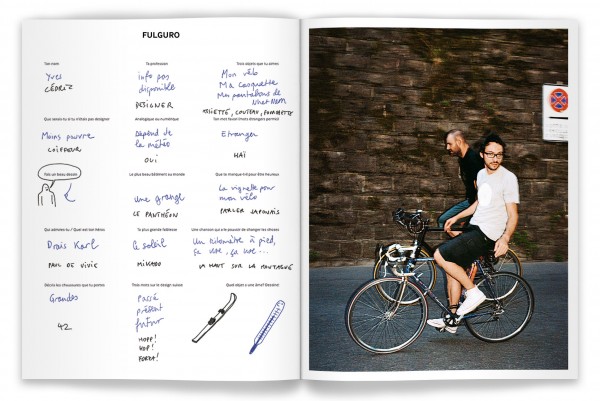 FULGURO
Ton nom
Ta profession
Trois objets que tu aimes
Yves
CÉDRIC
info pas
disponible
DESIGNER
Mon vélo
Ma casquette
Mes pantalons de
ASSIETTE, COUTEAU, FOURCHETTE
Que serais-tu si tu n'étais pas designer
Analogique ou numérique
Ton mot favori (mots étrangers permis)
Moins pauvre
COIFFEUR
Dépend de
la météo
OUI
Etranger
HAÏ
Fais un beau dessin
Le plus beau bâtiment au monde
Que te manque-t-il pour être heureux
une grange
LE PANTHÉON
La vignette pour
mon vélo
PARLER JAPONAIS
Qui admires-tu / Quel est ton héros
Ta plus grande faiblesse
Une chanson qui a le pouvoir de changer les choses
Drais Karl
PAUL DE VIVIE
le soleil
MIKADO
Un kilomètre à pied,
ça use, ça use...
LÀ HAUT SUR LA MONTAGNE
Décris les chaussures que tu portes
Trois mots sur le design suisse
Quel objet a une âme? Dessine!
Grandes
42
Passé
présent
futur
HOPP!
HOP!
FORZA!